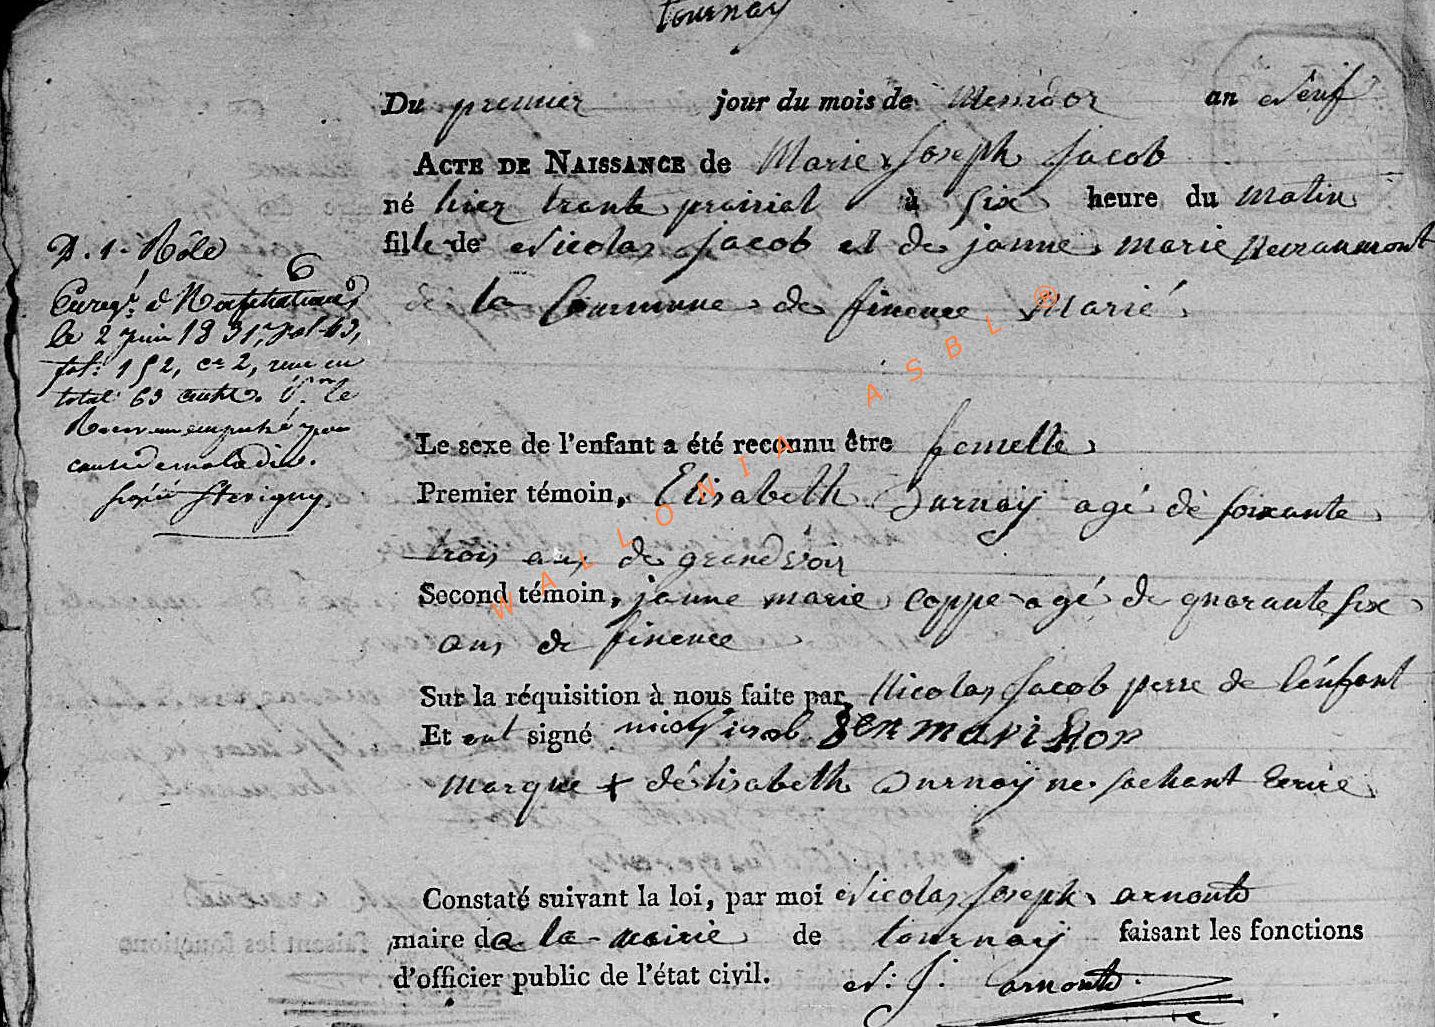 Tournay
Du premier jour du mois de Messidor an Neuf
ACTE DE NAISSANCE de Marie Joseph Jacob
né hier trante prairial à six heure du matin
fille de Nicolas Jacob et de janne marie
de la Commune de finence Marié
Le sexe de l'enfant a été reconnu être femelle
Premier témoin, Elisabeth Durnay agé de soixante
trois ans de grandvoir
Second témoin, janne marie coppe agé de quarante six
ans de finence
Sur la réquisition à nous faite par Nicolas Jacob perre de l'enfant
Et ont signé
Marque + d'élisabeth Durnay ne sachant Ecrire
Constaté suivant la loi, par moi Nicolas Joseph arnould
maire de la mairie de tournay faisant les fonctions
d'officier public de l'état civil. N: J: arnould
1. Rôle
6
le 2 juin 1831, vol 43,
fol: 152, cse 2, reçu en
total 63 cents. le
pour
cause de maladie.
signé Stevigny
WALLONIA ASBL ®